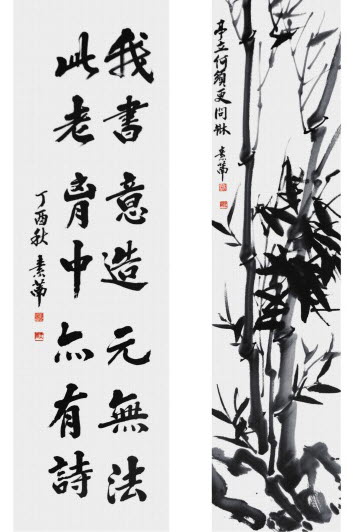 亭立何須更問
素
我書意造元無法
此老胷中亦有詩
丁酉秋 素